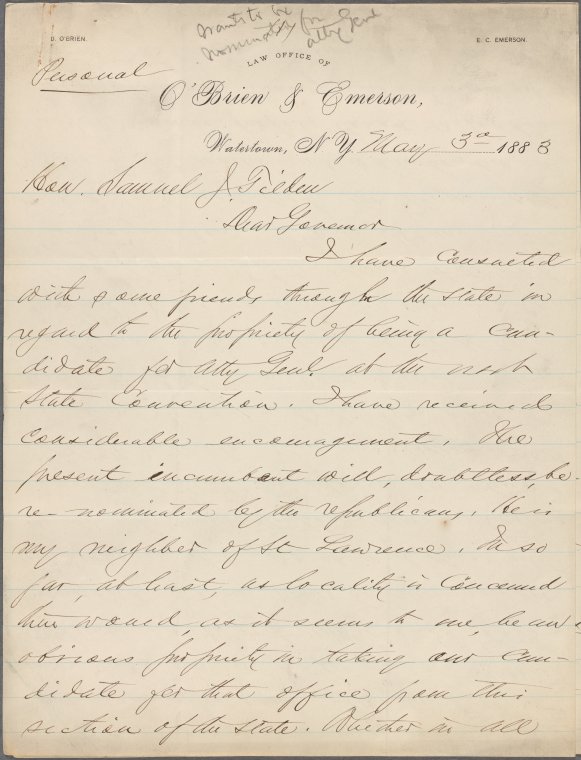 wants to be
nomination for
atty Genl
D. O'BRIEN.
E. C. EMERSON.
LAW OFFICE OF
Personal
O'Brien & Emerson,
Watertown, N.Y. May 3rd 1883
Hon. Samuel J Tilden
Dear Governor
I have consulted
with some friends through the state in
regard to the propriety of being a can-
didate for Atty Genl. at the next
State Convention. I have received
considerable encouragement. The
present incumbent will, doubtless, be
re-nominated by the republicans. He is
my neighbor of St Lawrence. In so
far, at least, as locality is concerned
there would, as it seems to me, be an
obvious propriety in taking our can-
didate for that office from this
section of the state. Whether in all